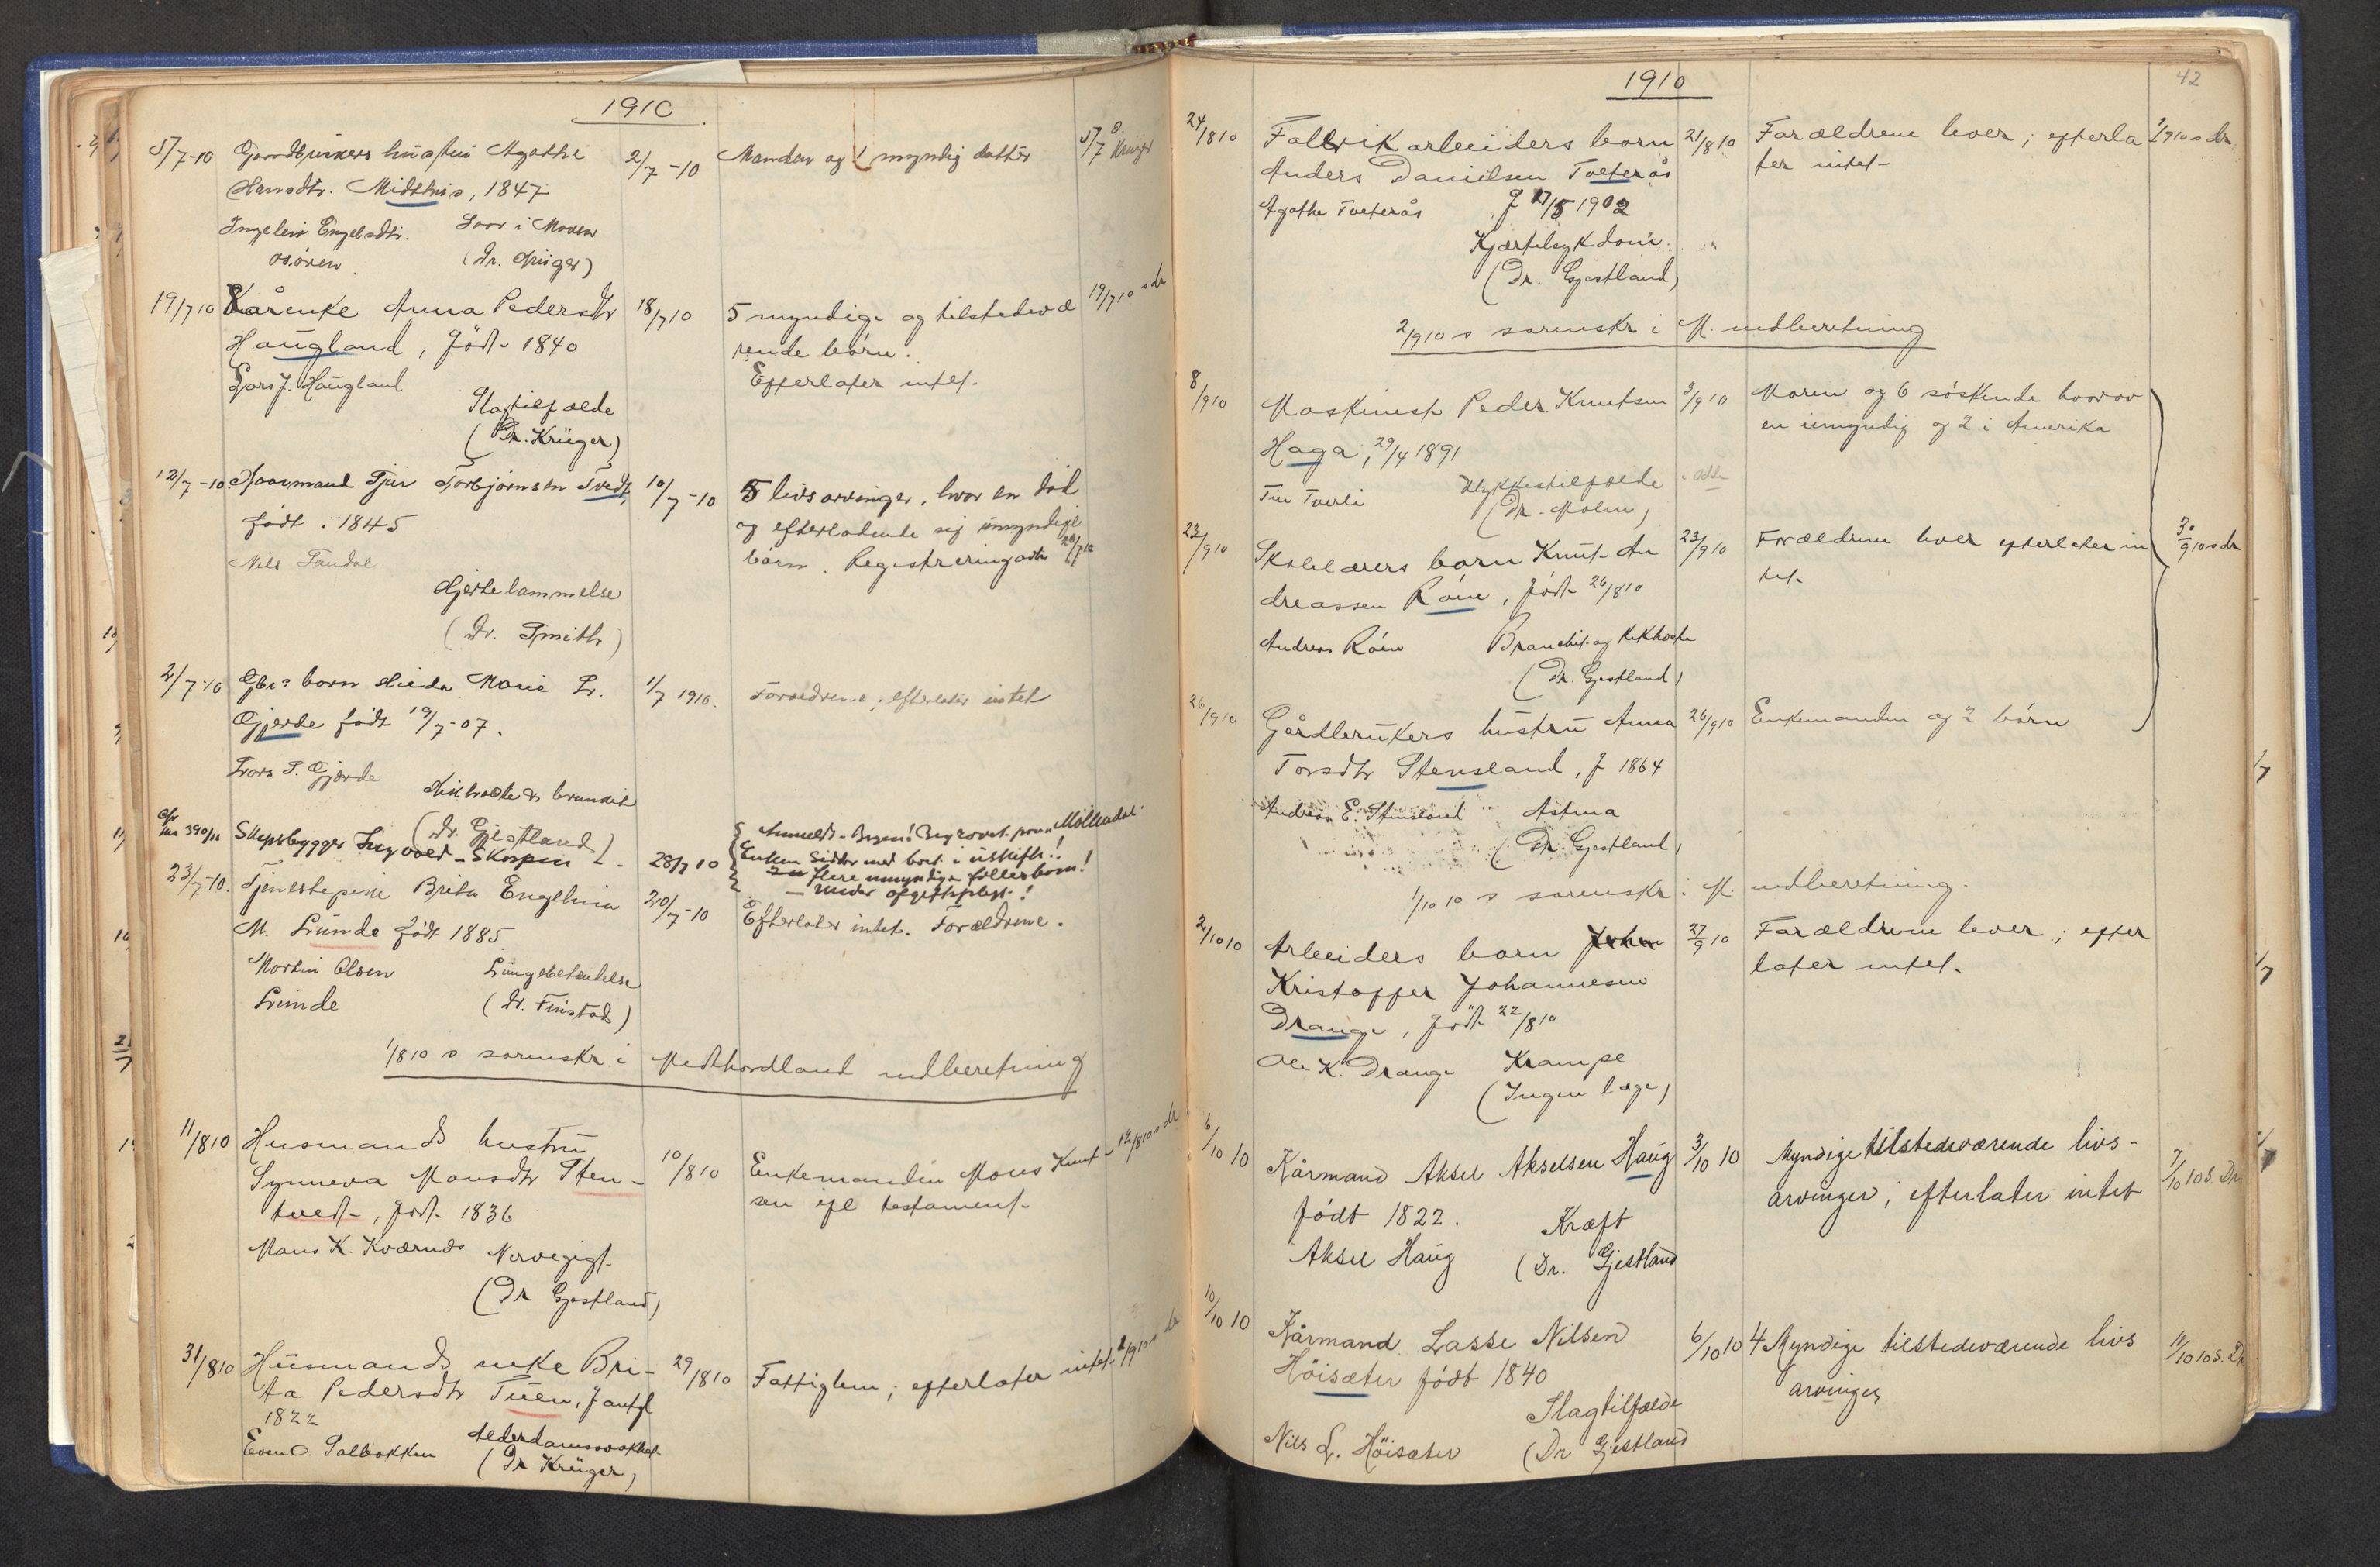 1910
5/7-10 Gaardbrukers hustru Agathe 2/7-10 Manden og 1 myndig datter 5/7
Hansdtr. Midthus, 1847
Ingeleiv Engelsdtr. Saar i Maven
Osøren (Dr. Krüger)
19/7 10 Kårenke Anna Pedersdtr 18/7 10 5 myndige og tilstedevæ 19/7 10 s dr
Haugland, född 1840 rende børn.
Lars J. Haugland Efterlater intet.
Slagtilfælde
(Dr. Krüger)
12/7-10 Kaarmand Torbjørnsen Tvedt 10/7-10 5 livsarvinger, hvor en død
født 1845 og efterladende sig umyndige
Nils Tandal børn. Registreringsattr 20/7 10
Hjertelammelse
(Dr. Smith)
2/7-10 Gbr. barn Marie L. 1/7 1910. Forældrene; efterlater intet
Gjerde født 19/7-07.
Lars P. Gjerde Kikhoste & bronkit
(Dr. Gjestland)
Skipsbygger Ingvald Skorpen 28/7 10 Enken sidder med boet i uskifte!
flere umyndige fællesbørn!
23/7-10. Tjenestepike Brita Engelina 20/7-10 Efterlater intet. Forældrene.
M. Lunde født 1885
Martin Olsen Lungebetændelse
Lunde (Dr. Finstad)
1/8 10 s sorenskr i Midthordland indberetning
11/8 10 Husmands hustru
Synneva Monsdtr Sten- 10/8 10 Enkemanden Mons Knut- 12/8 10 s dr
tvedt, född 1836 sen ifl testament
Mons K. Kværnds Nervegigt
(Dr Gjestland)
31/8 10 Husmands enke Bri- 29/8 10 Fattiglem; efterlater intet 2/9 10 s dr
ta Pedersdtr Tuen, f antgl
1822
Even O. Solbakken Alderdomssvakhet
(Dr Krüger)
1910
42
24/8 10 Fabrikarbeiders barn 21/8 10 Forældrene lever; efterla 1/9 10 s dr
Anders Danielsen Tveterås ter intet
Agathe Tveterås f 17/5 1902
Kjertelsykdom
(Dr. Gjestland)
2/9 10 s sorenskr i M. indberetning
8/9 10 Maskinist Peder Knutsen 3/9 10 Moren og 6 søskende hvorav
Haga, 29/4 1891 en umyndig og 2 i Amerika
Tveili Ulykkestilfælde
(Dr. Holm)
23/9 10 Skolelærers barn Knut An 23/9 10 Forældrene lever efterlater in 30/9 10 s dr
dreassen Røen, född 26/8 10 tet
Andreas Røen Bronchit og kikhoste
(Dr. Gjestland)
26/9 10 Gårdbrukers hustru Anna 26/9 10 Enkemanden og 2 børn
Torsdtr Stensland, f 1864
Andreas E. Stensland Astma
(Dr. Gjestland)
1/10 10 s sorenskr. i M. indberetning.
2/10 10 Arbeiders barn 27/9 10 Forældrene lever; efter
Kristoffer Johannesen later intet.
Drange, född 22/8 10
Ole K. Drange Krampe
(Ingen læge)
6/10 10 Kårmand Aksel Akselsen Haug 3/10 10 Myndige tilstedeværende livs-
født 1822. arvinger; efterlater intet 7/10 10 S. Dr
Kræft
Aksel Haug (Dr. Gjestland
10/10 10 Kårmand Lasse Nilsen 6/10 10 4 Myndige tilstedeværende livs 11/10 10 S. Dr
Höisæter født 1840 arvinger
Slagtilfælde
Nils L. Höisæter (Dr Gjestland